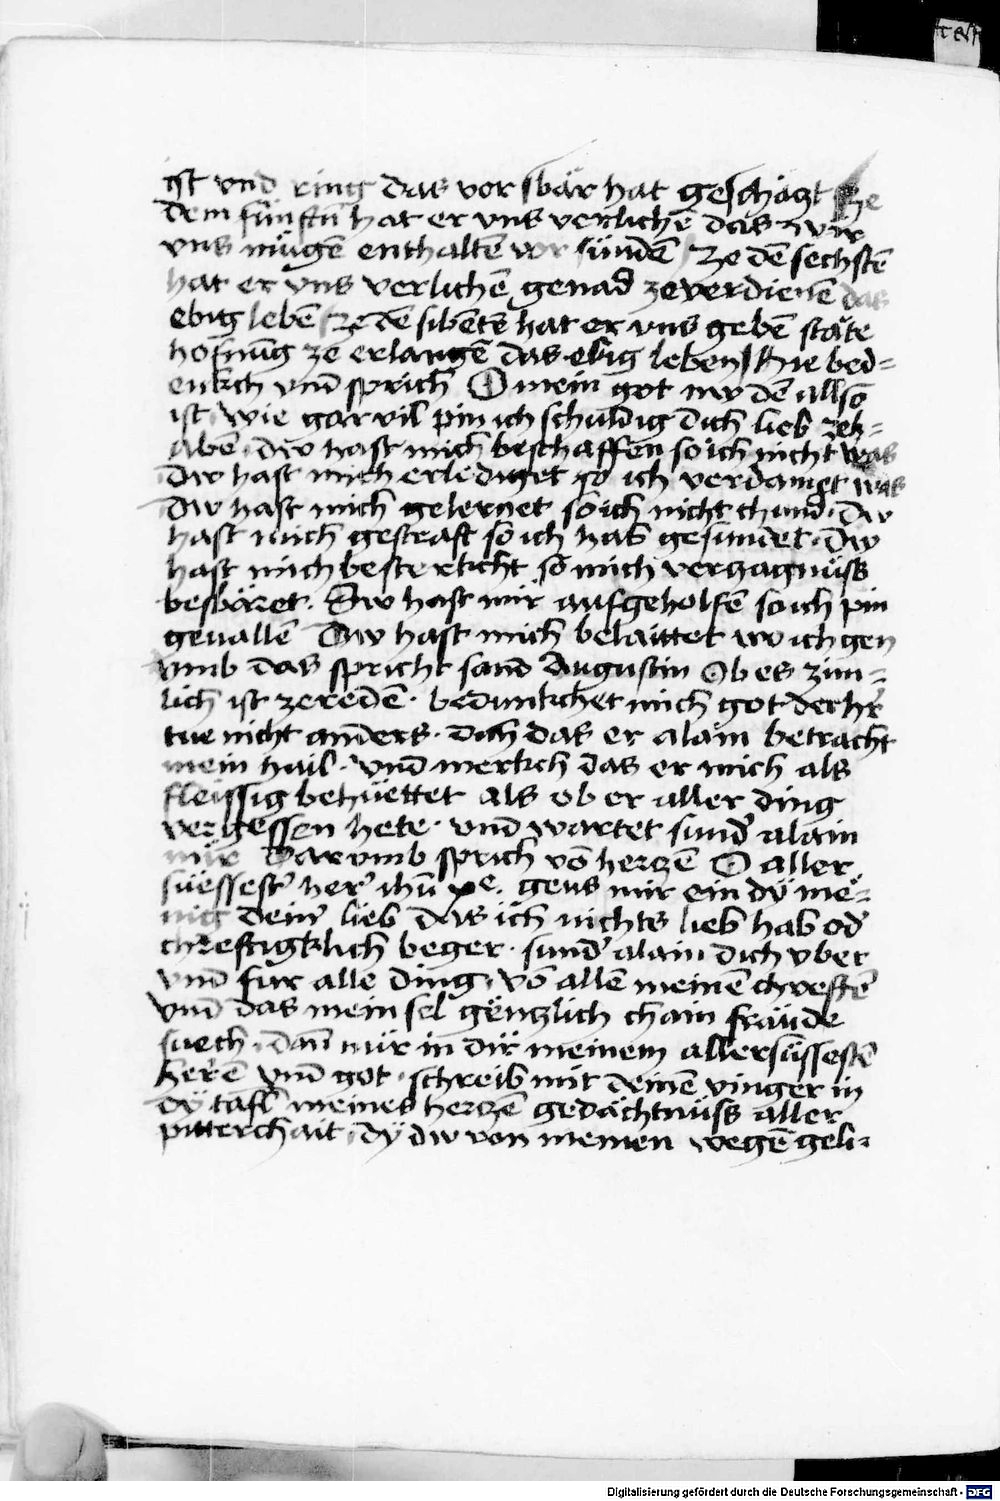 ist vnd ring das vor swär hat geschäczt Ze
dem fünftñ hat er vns verlichē das wir
vns mügē enthaltē vor sündē Ze dē sechstē
hat er vns verlichē genad ze verdienē das
ebig lebē Ze dē sibētē hat er vns gebē stäte
hofnūg ze erlangē das ebig leben Hie bed=
enkch vnd sprich O mein got nw dē allso
ist wie gar vil pin ich schuldig dich lieb zeh=
abē dw hast mich beschaffen so ich nicht was
Dw hast mich erlediget so ich verdampt was
Dw hast mich gelernet so ich nicht chund dw
hast mich gestraft so ich hab gesundet dw
hast mich besterkcht so mich verzagnüss
beswäret. Dw hast mir aufgeholfē so ich pin
geuallē Dw hast mich belaittet wo ich gen
vmb das spricht sand Augustin Ob es zim=
lich ist ze redē. bedunkchet mich got der hr̄
tue nicht anders. dan̄ das er alain betracht
mein hail. vnd merkch das er mich als
fleissig behüettet als ob er aller ding
vergessen hete. vnd wartet sund̄ alain
mür Darvmb sprich vō herczē O aller
süessest̄ her̄ ihū xpe. geus mir ein dÿ me=
nig deinr̄ lieb das ich nichts lieb hab od̄
chreftigklich beger. sund̄ alain dich vber
vnd fur alle ding vō allē meinē chreftē
vnd das mein sel gënczlich chain fräude
suech dan̄ nür in dir meinem allersüssestē
herrē vnd got. schreib mit deinē vinger in
dÿ tafl meines herczē gedächtnüss aller
pitterchait dÿ dw von meinen wegē geli=
Digitalisierung gefördert durch die Deutsche Forschungsgemeinschaft - DFG